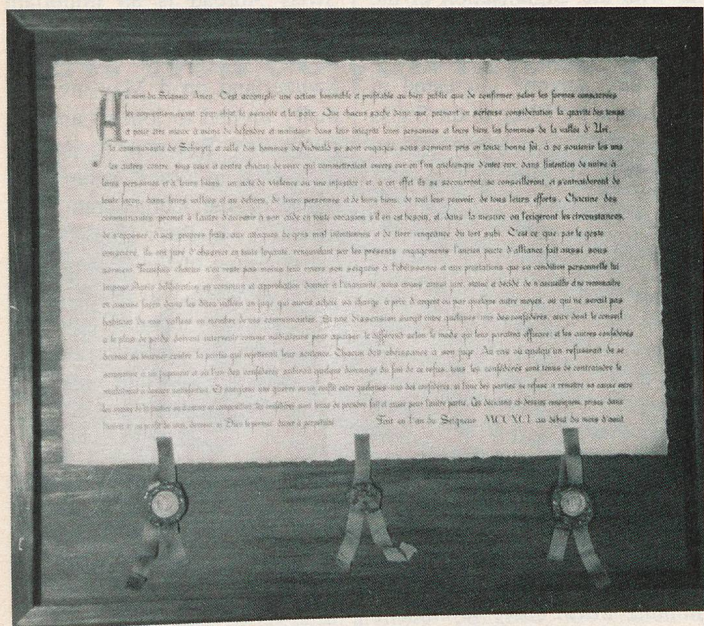 Au nom du Seigneur Amen. C'est accomplir une action honorable et profitable au bien public que de confirmer selon les formes consacrées
les conventions ayant pour objet la sécurité et la paix. Que chacun sache donc que, prenant en sérieuse considération la gravité des temps
et pour être mieux à même de défendre et maintenir dans leur intégrité leurs personnes et leurs biens, les hommes de la vallée d'Uri,
la communauté de Schwytz et celle des hommes de Nidwald se sont engagés, sous serment pris en toute bonne foi, à se soutenir les uns
les autres contre tous ceux et contre chacun de ceux qui commettraient envers eux ou l'un quelconque d'entre eux, dans l'intention de nuire à
leurs personnes et à leurs biens, un acte de violence ou une injustice; et à cet effet ils se secourront, se conseilleront et s'entraideront de
toute façon, dans leurs vallées et au dehors, de leurs personnes et de leurs biens, de tout leur pouvoir, de tous leurs efforts. Chacune des
communautés promet à l'autre d'accourir à son aide en toute occasion s'il en est besoin, et, dans la mesure où l'exigeront les circonstances,
de s'opposer, à ses propres frais, aux attaques de gens mal intentionnés et de tirer vengeance du tort subi. C'est ce que par le geste
consacré, ils ont juré d'observer en toute loyauté, renouvelant par les présents engagements l'ancien pacte d'alliance fait aussi sous
serment. Toutefois chacun n'en reste pas moins tenu envers son seigneur à l'obéissance et aux prestations que sa condition personnelle lui
impose. Après délibération en commun et approbation donnée à l'unanimité, nous avons aussi juré, statué et décidé de n'accueillir et ne reconnaître
en aucune façon dans les dites vallées un juge qui aurait acheté sa charge à prix d'argent ou par quelque autre moyen, ou qui ne serait pas
habitant de nos vallées ou membre de nos communautés. Si une dissension surgit entre quelques-uns des confédérés, ceux dont le conseil
a le plus de poids doivent intervenir comme médiateurs pour apaiser le différend selon le mode qui leur paraîtra efficace; et les autres confédérés
devront se tourner contre la partie qui rejetterait leur sentence. Chacun doit obéissance à son juge. Au cas où quelqu'un refuserait de se
soumettre à un jugement et où l'un des confédérés subirait quelque dommage du fait de ce refus, tous les confédérés sont tenus de contraindre le
à donner satisfaction. Et surgisse une guerre ou un conflit entre quelques-uns des confédérés, si l'une des parties se refuse à remettre sa cause entre
les confédérés sont tenus de prendre fait et cause pour l'autre partie. Les décisions ci-dessus consignées, prises dans
l'intérêt et au profit de tous, doivent, si Dieu le permet, durer à perpétuité. Fait en l'an du Seigneur MCCXCI au début du mois d'août